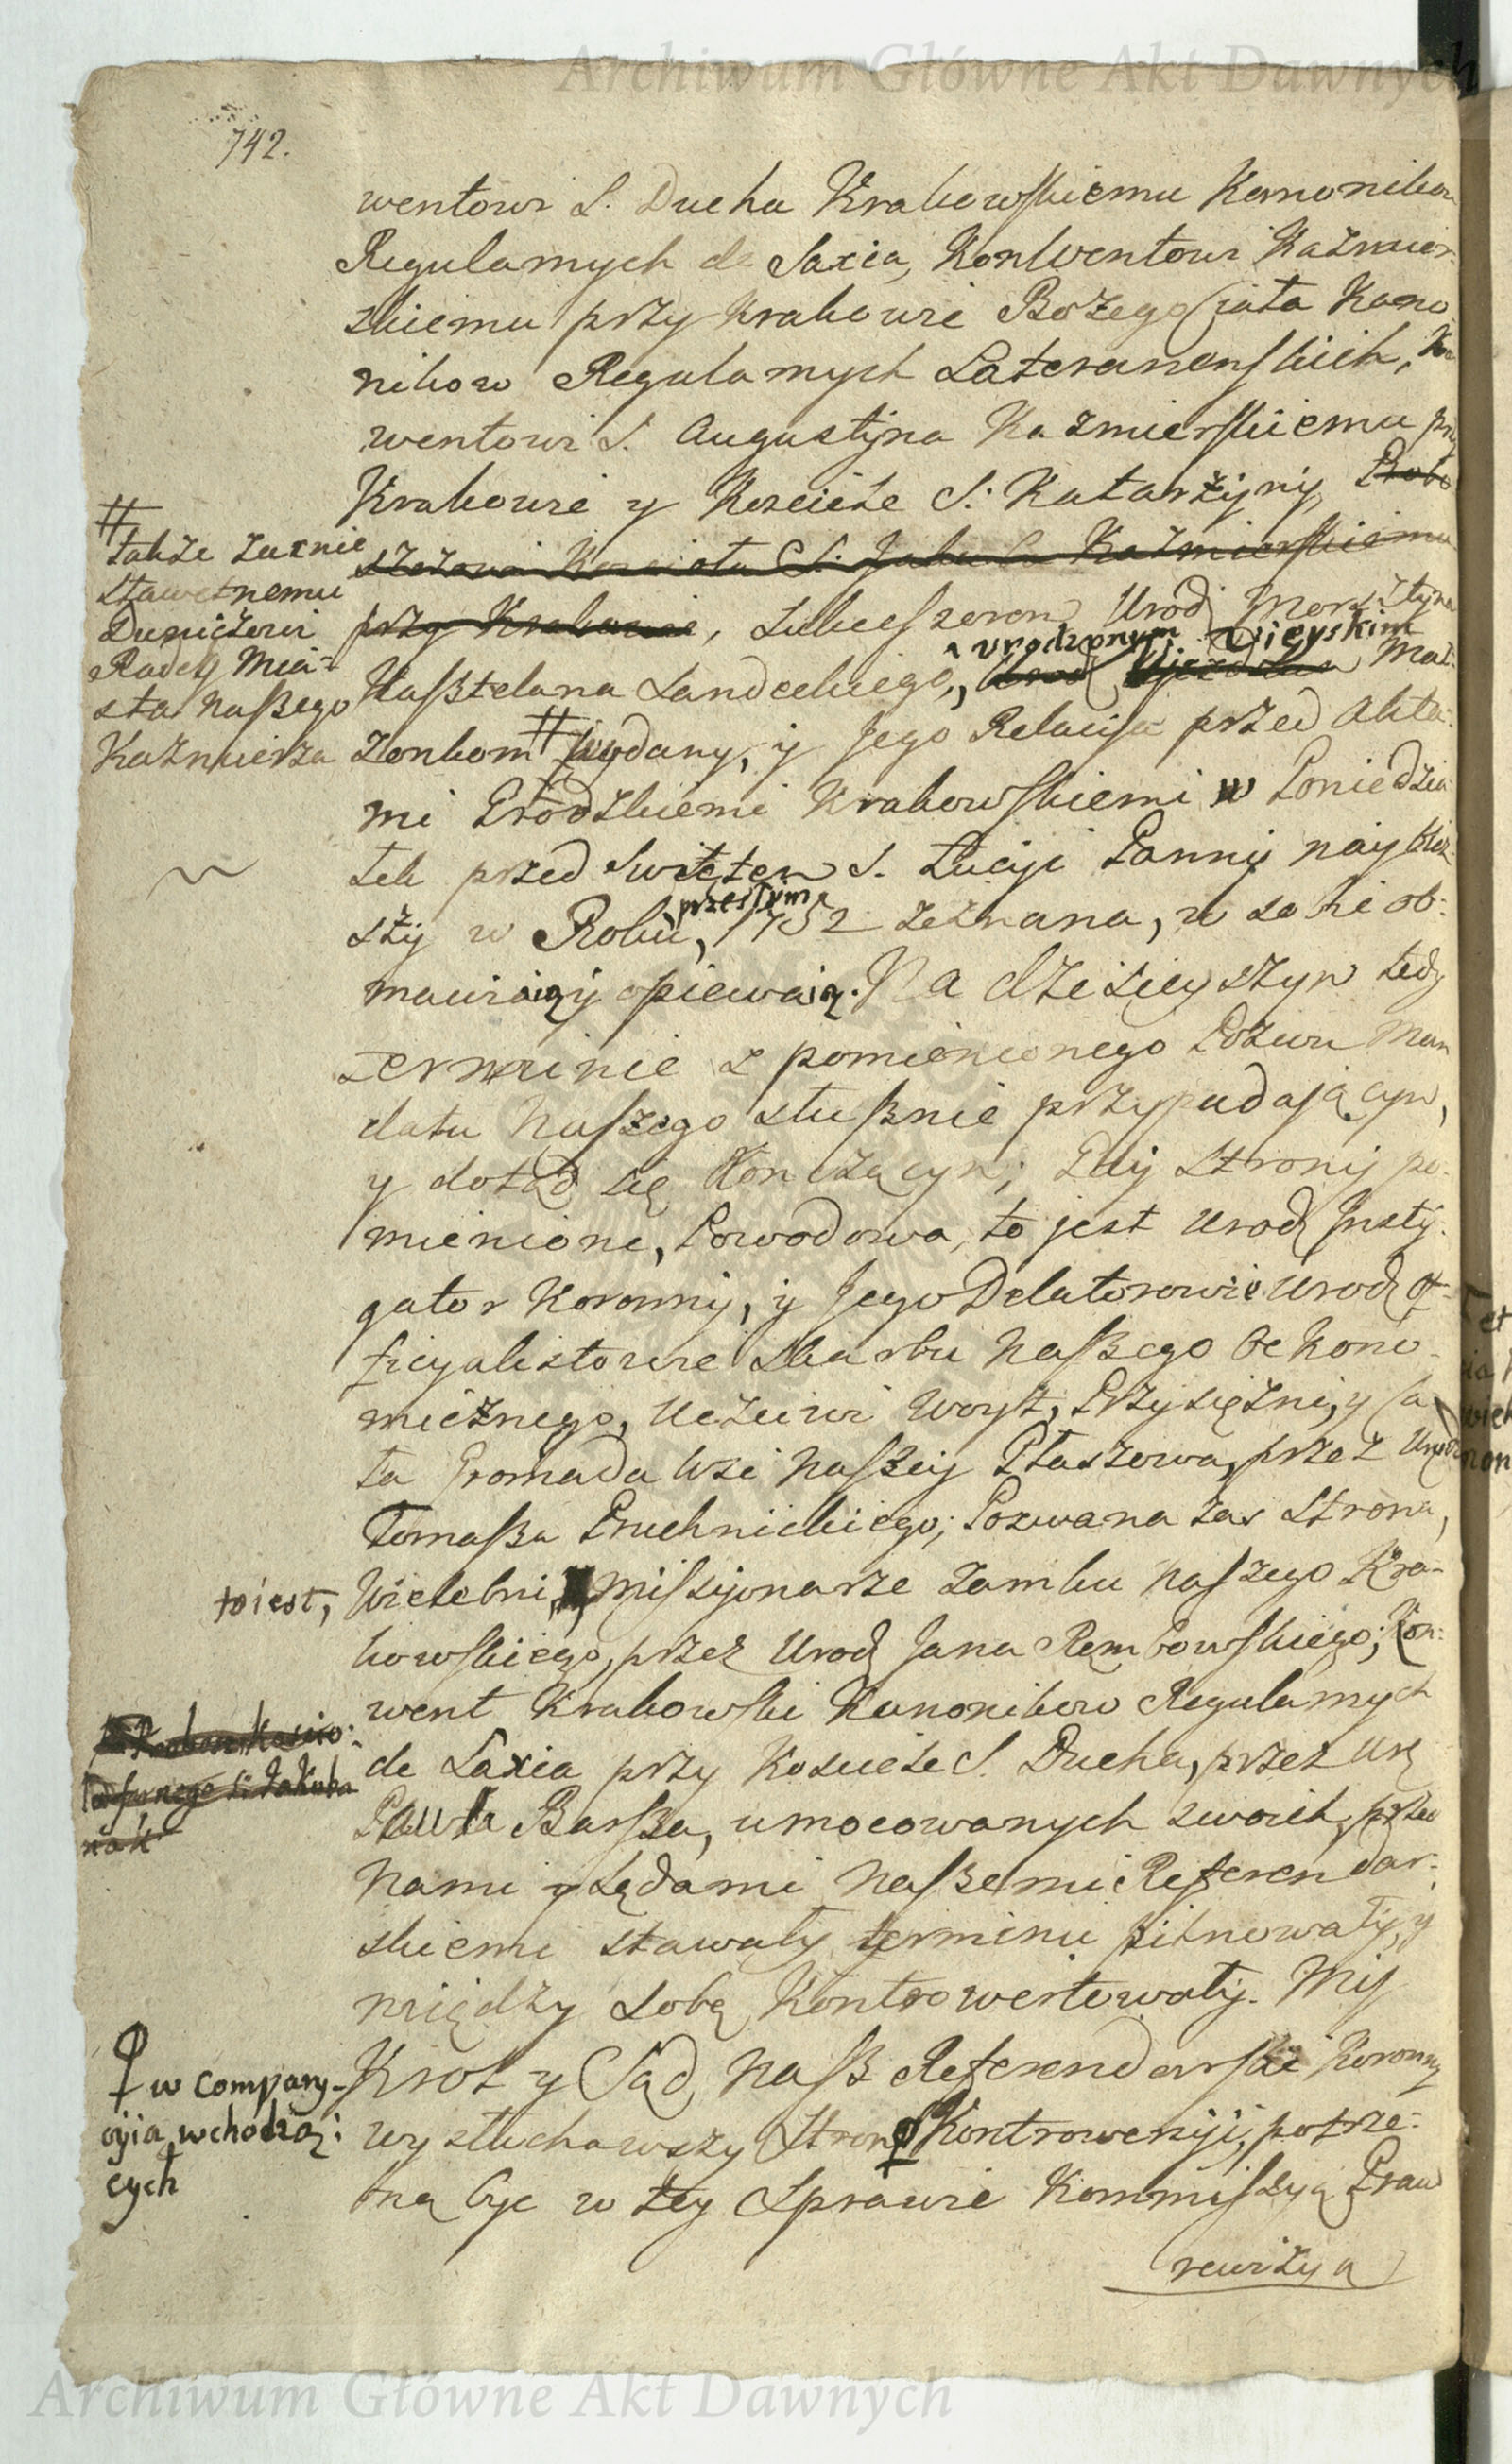 Archiwum Główne Akt Dawnych
742.
wentowi S. Ducha Krakowskiemu Kanonikow
Regularnych de Saxia, Konwentowi Kazmier-
skiemu przy Krakowie Bożego Ciała Kano-
nikow Regularnych Lateranenskich, Kon
wentowi S. Augustyna Kazmierskiemu przy
Krakowie y Kosciele S. Katarzyny, Probo
szczowi Koscioła S. Jakuba Kazmierskiemu
przy Krakowie, Sukcessorom Urodz Morsztyna
^ urodzonym
Kasztelana Sandeckiego, Urodz Mał-
żonkom # wydany, y Jego Relacya przed Akta-
mi Grodzkiemi Krakowskiemi w Poniedzia-
łek przed Swiętem S. Łucyi Panny nay bliż-
przeszłym
szy w Roku, 1752 zeznana, w sobie ob-
mawiaią y opiewaią. Na dzisieyszym tedy
Terminie z pomienionego Pozwu Man
datu Naszego słusznie przypadaiącym,
y dotąd się Kończącym; Gdy Strony po-
mienione, Powodowa, to jest Urodz Insty-
gator Koronny, y Jego Delatorowie Urodz Of-
ficyalistowie Skarbu Naszego Oekono-
micznego, Uczciwi Woyt, Przysiężni, y Ca-
ła Gromada Wsi Naszey Płaszowa, przez Urodz
Tomasza Pruchnickiego; Pozwana zas Strona,
Wielebni, Missyonarze Zamku Naszego Kra-
kowskiego, przez Urodz Jana Rembowskiego; Kon-
went Krakowski Kanonikow Regularnych
de Saxia przy Kosciele S. Ducha, przez Urz
Pawła Barsza, umocowanych swoich, przed
Nami y Sądami Naszemi Referendar-
skiemi stawały, terminu pilnowały, y
między sobą Kontrowertowały. My
Krol y Sąd Nasz Referendarski Koronny
wysłuchawszy Stron Kontrowersyi, potrze-
bną byc w tey Sprawie Kommissyą Praw
rewizyą
#
także zacnie
sławetnemu
Duniczowi
Radcy Mia-
sta Naszego
Kazmierza
to iest,
S: Jakuba
w Compary-
cyią wchodzą-
cych
Archiwum Główne Akt Dawnych